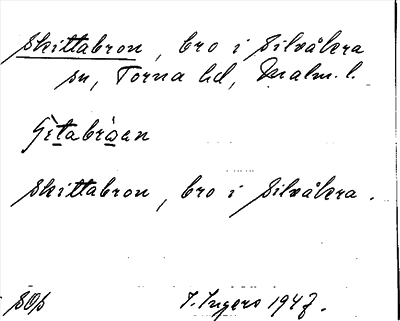 Skittabron, bro i Silvåkra
sn, Torna hd, Malm. l.
Skittabron, bro i Silvåkra.
SOs
I. Ingers 1947.